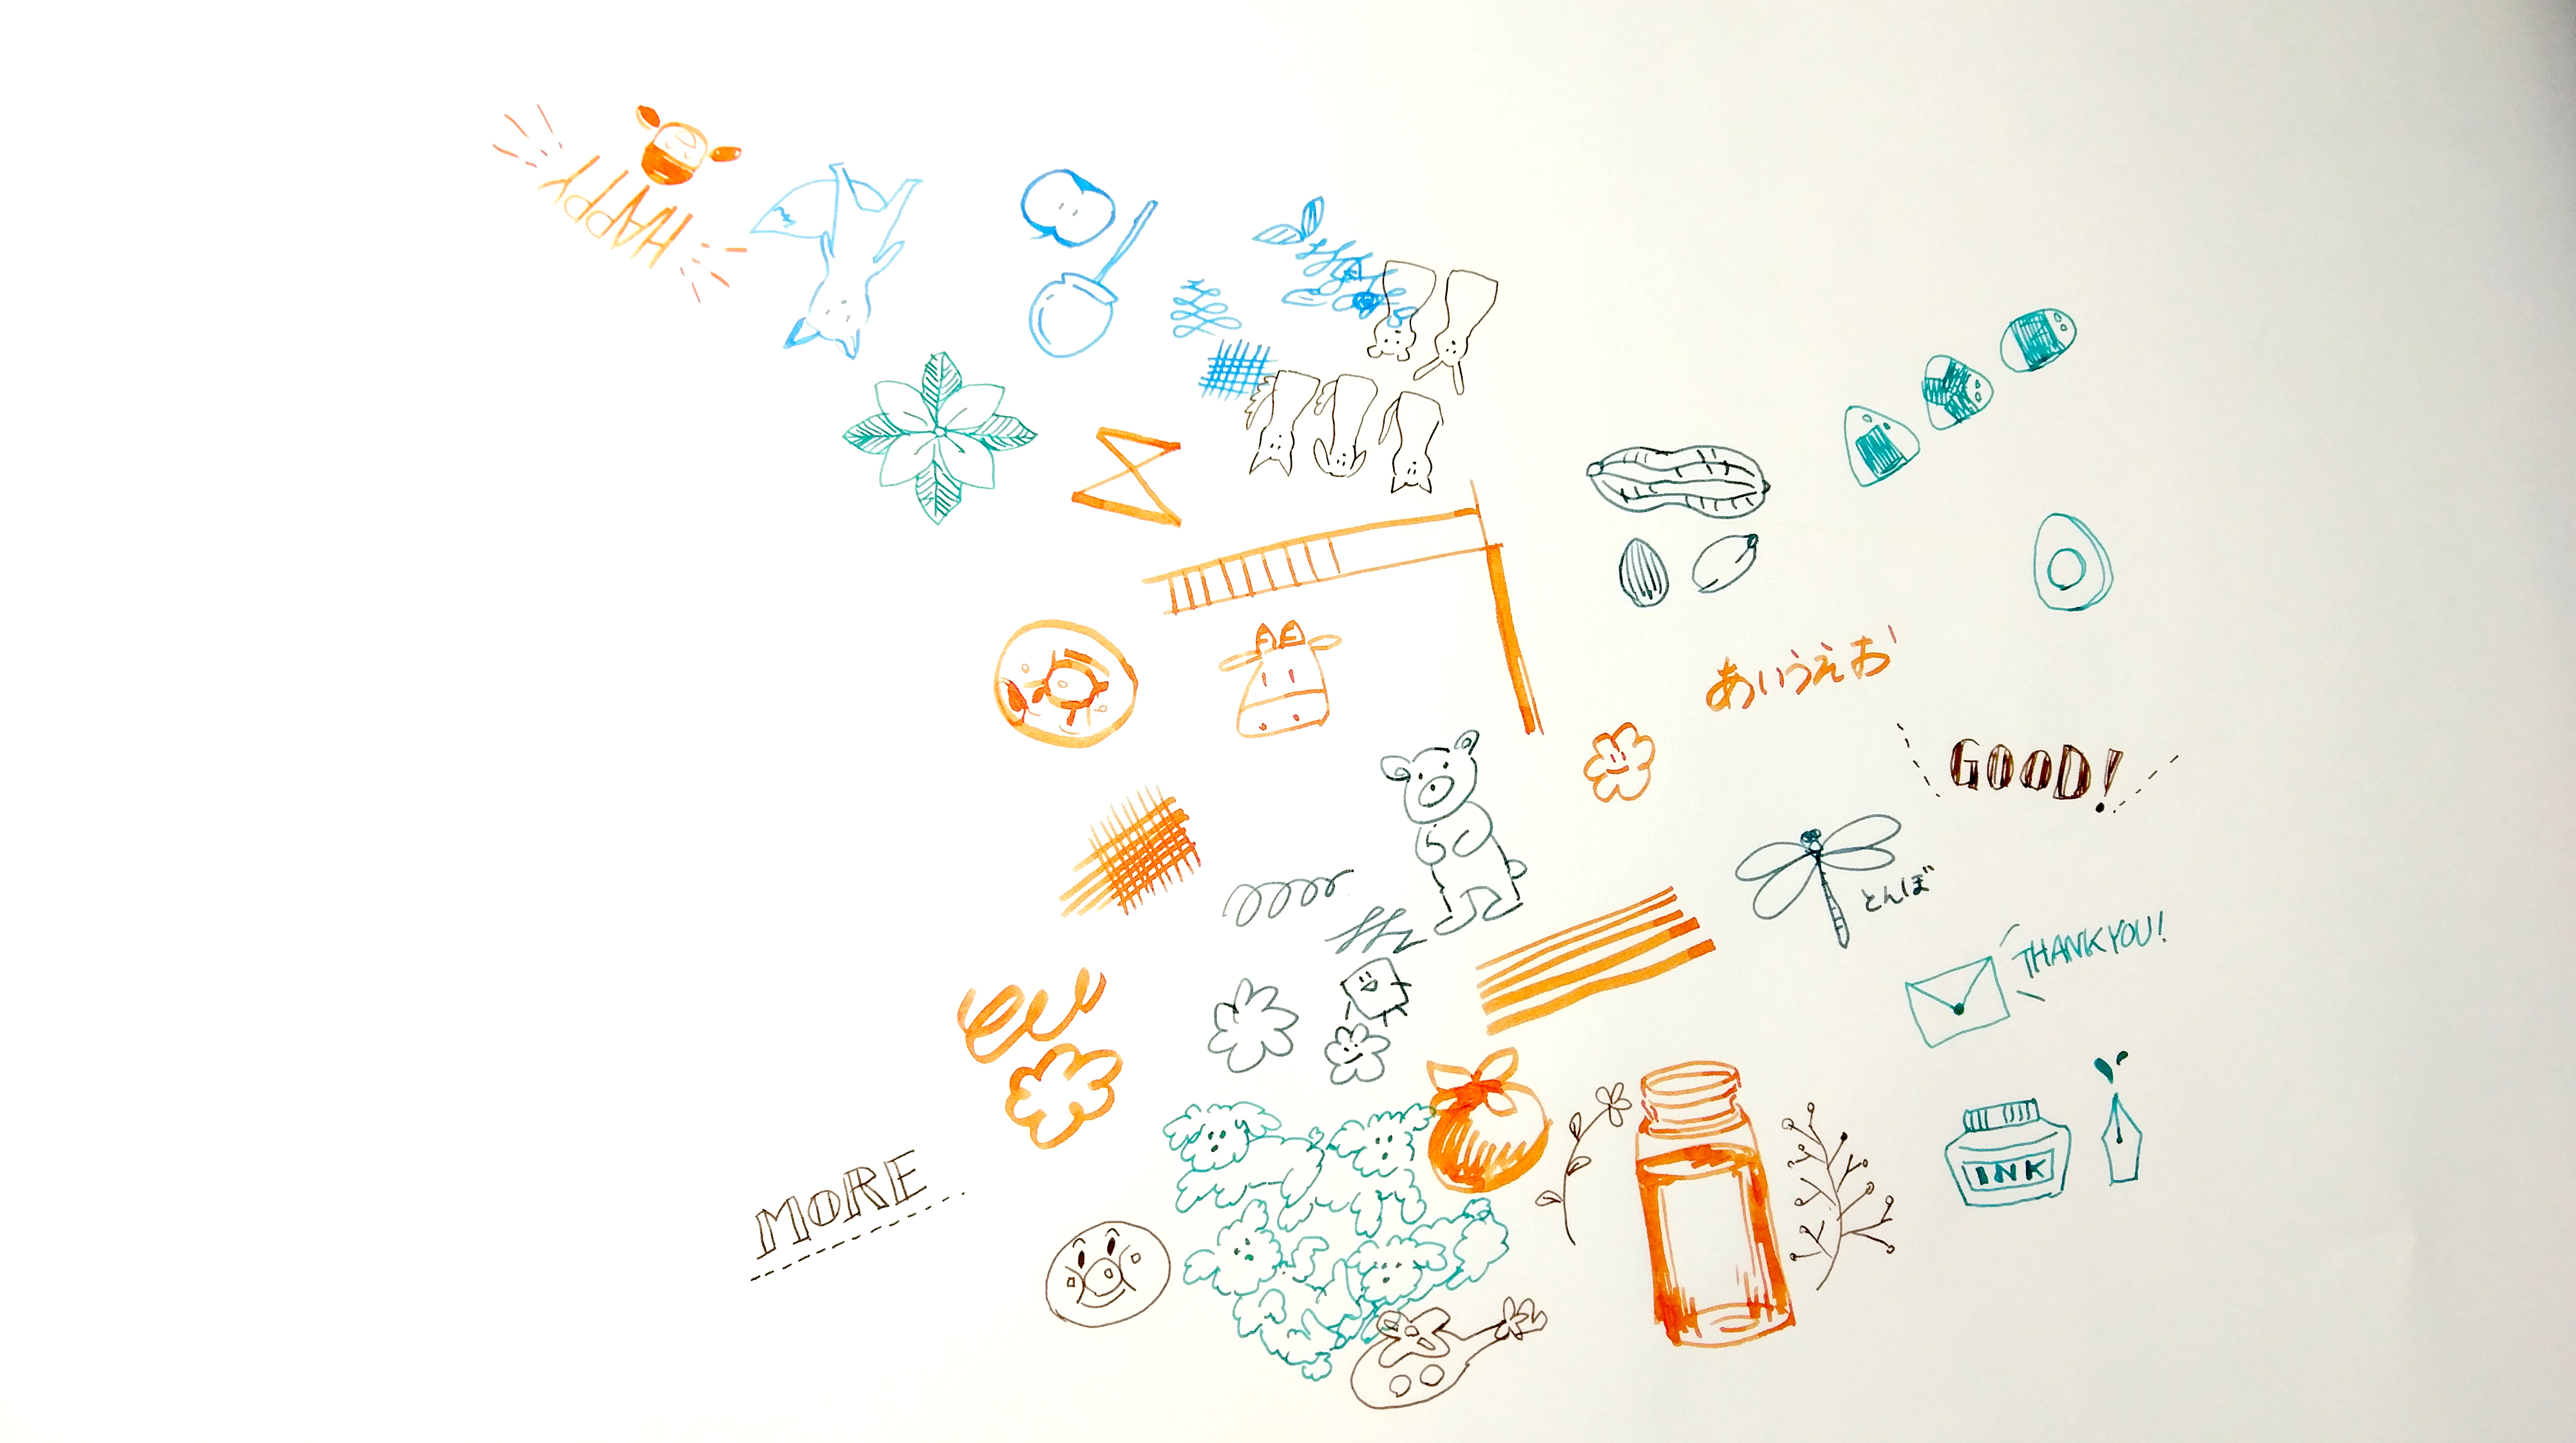 HAPPY
あいうえお
GOOD!
とんぼ
THANK YOU!
INK
MORE